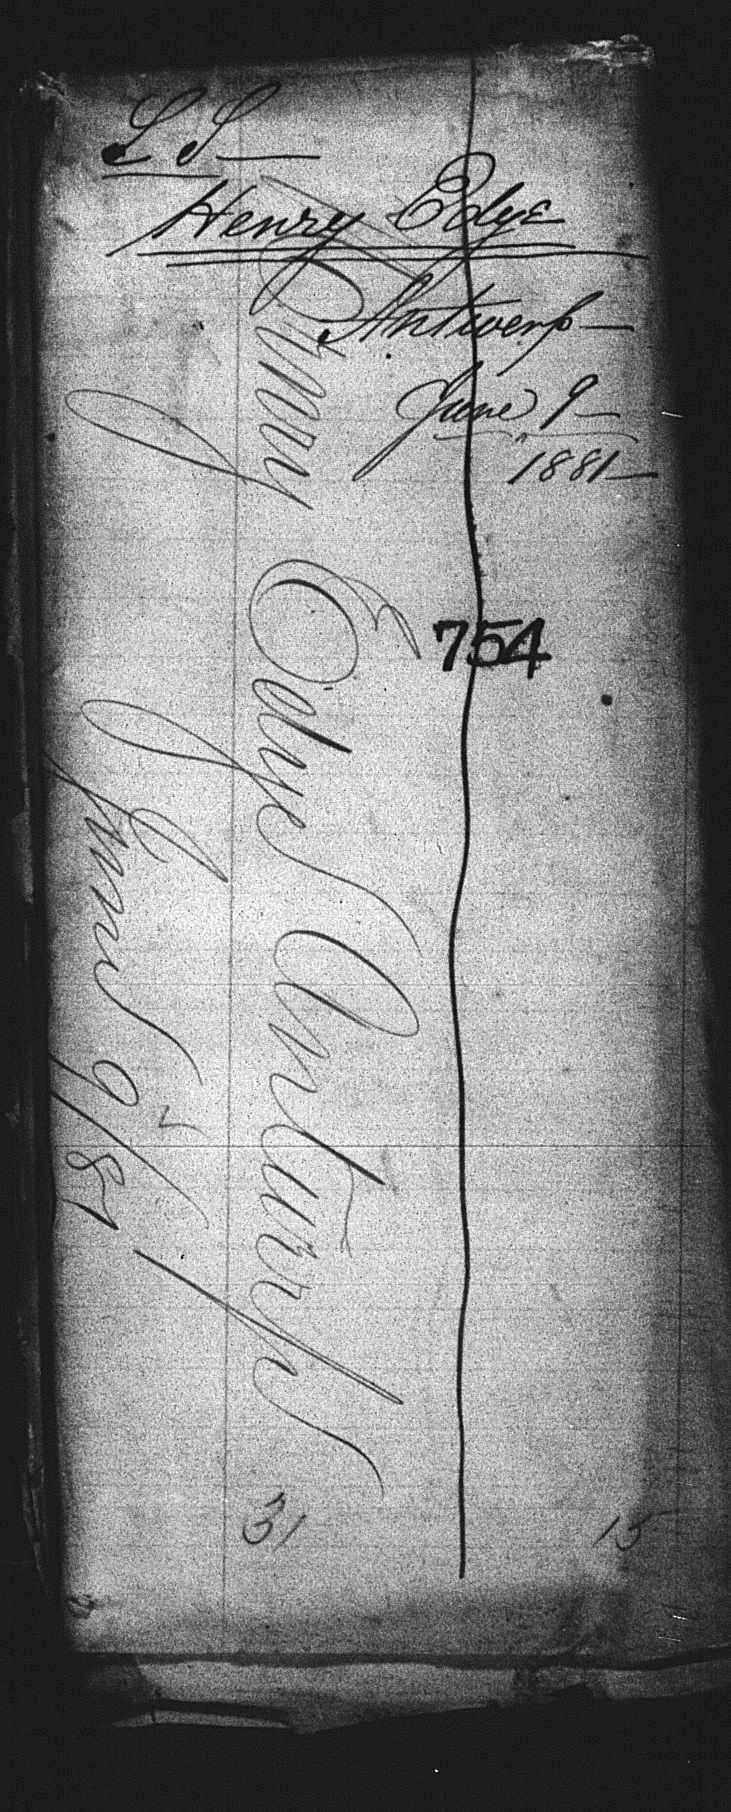 S S
Henry Edye
Antwerp
June 9
1881
754
Henry Edye Antwerp
June 9/81
31
15